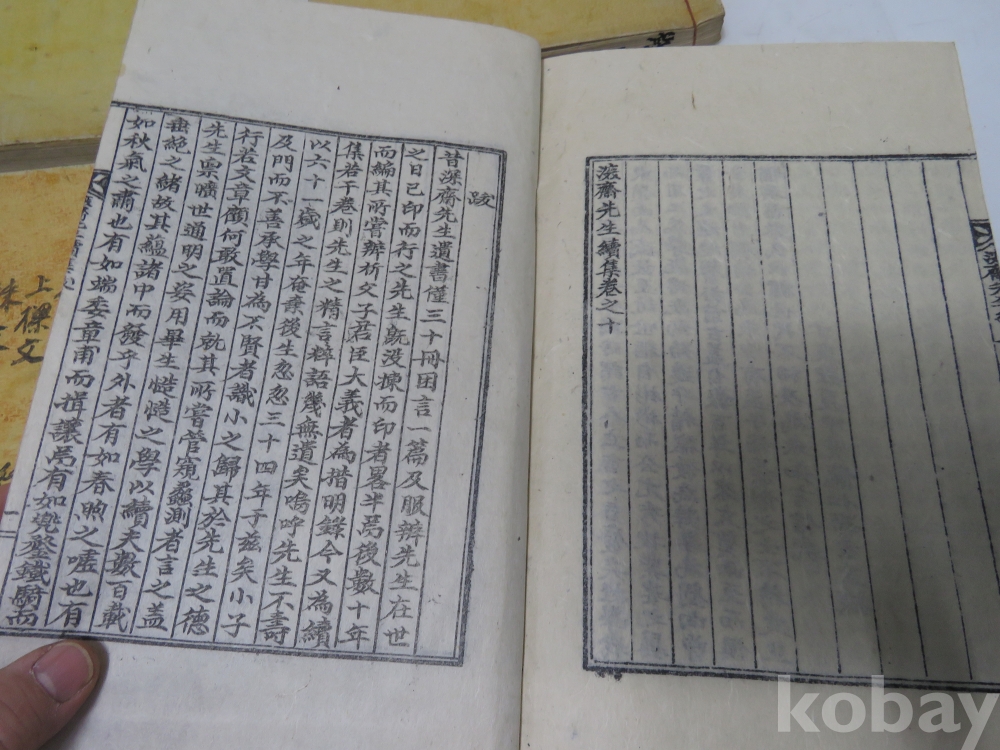 深齋先生續集卷之十
跋
昔深齋先生遺書僅三十冊困言一篇及服辨先生在世
之日已印而行之先生旣没揀而印者畧半焉後數十年
而編其所嘗辨析父子君臣大義者為揩明錄今又為續
集若干卷則先生之精言粹語幾無遺矣嗚呼先生不壽
以六十一歲之年奄棄後生忽忽三十四年于玆矣小子
及門而不善承學甘為不賢者識小之歸其於先生之德
行若文章儻何敢置論而就其所嘗管窺蠡測者言之盖
先生禀曠世通明之姿用畢生慥慥之學以續夫數百載
垂絶之緖故其蘊諸中而發乎外者有如春煦之噓也有
如秋氣之肅也有如端委章甫而揖讓焉有如兜鍪鐵騎而
上樑文
kobay